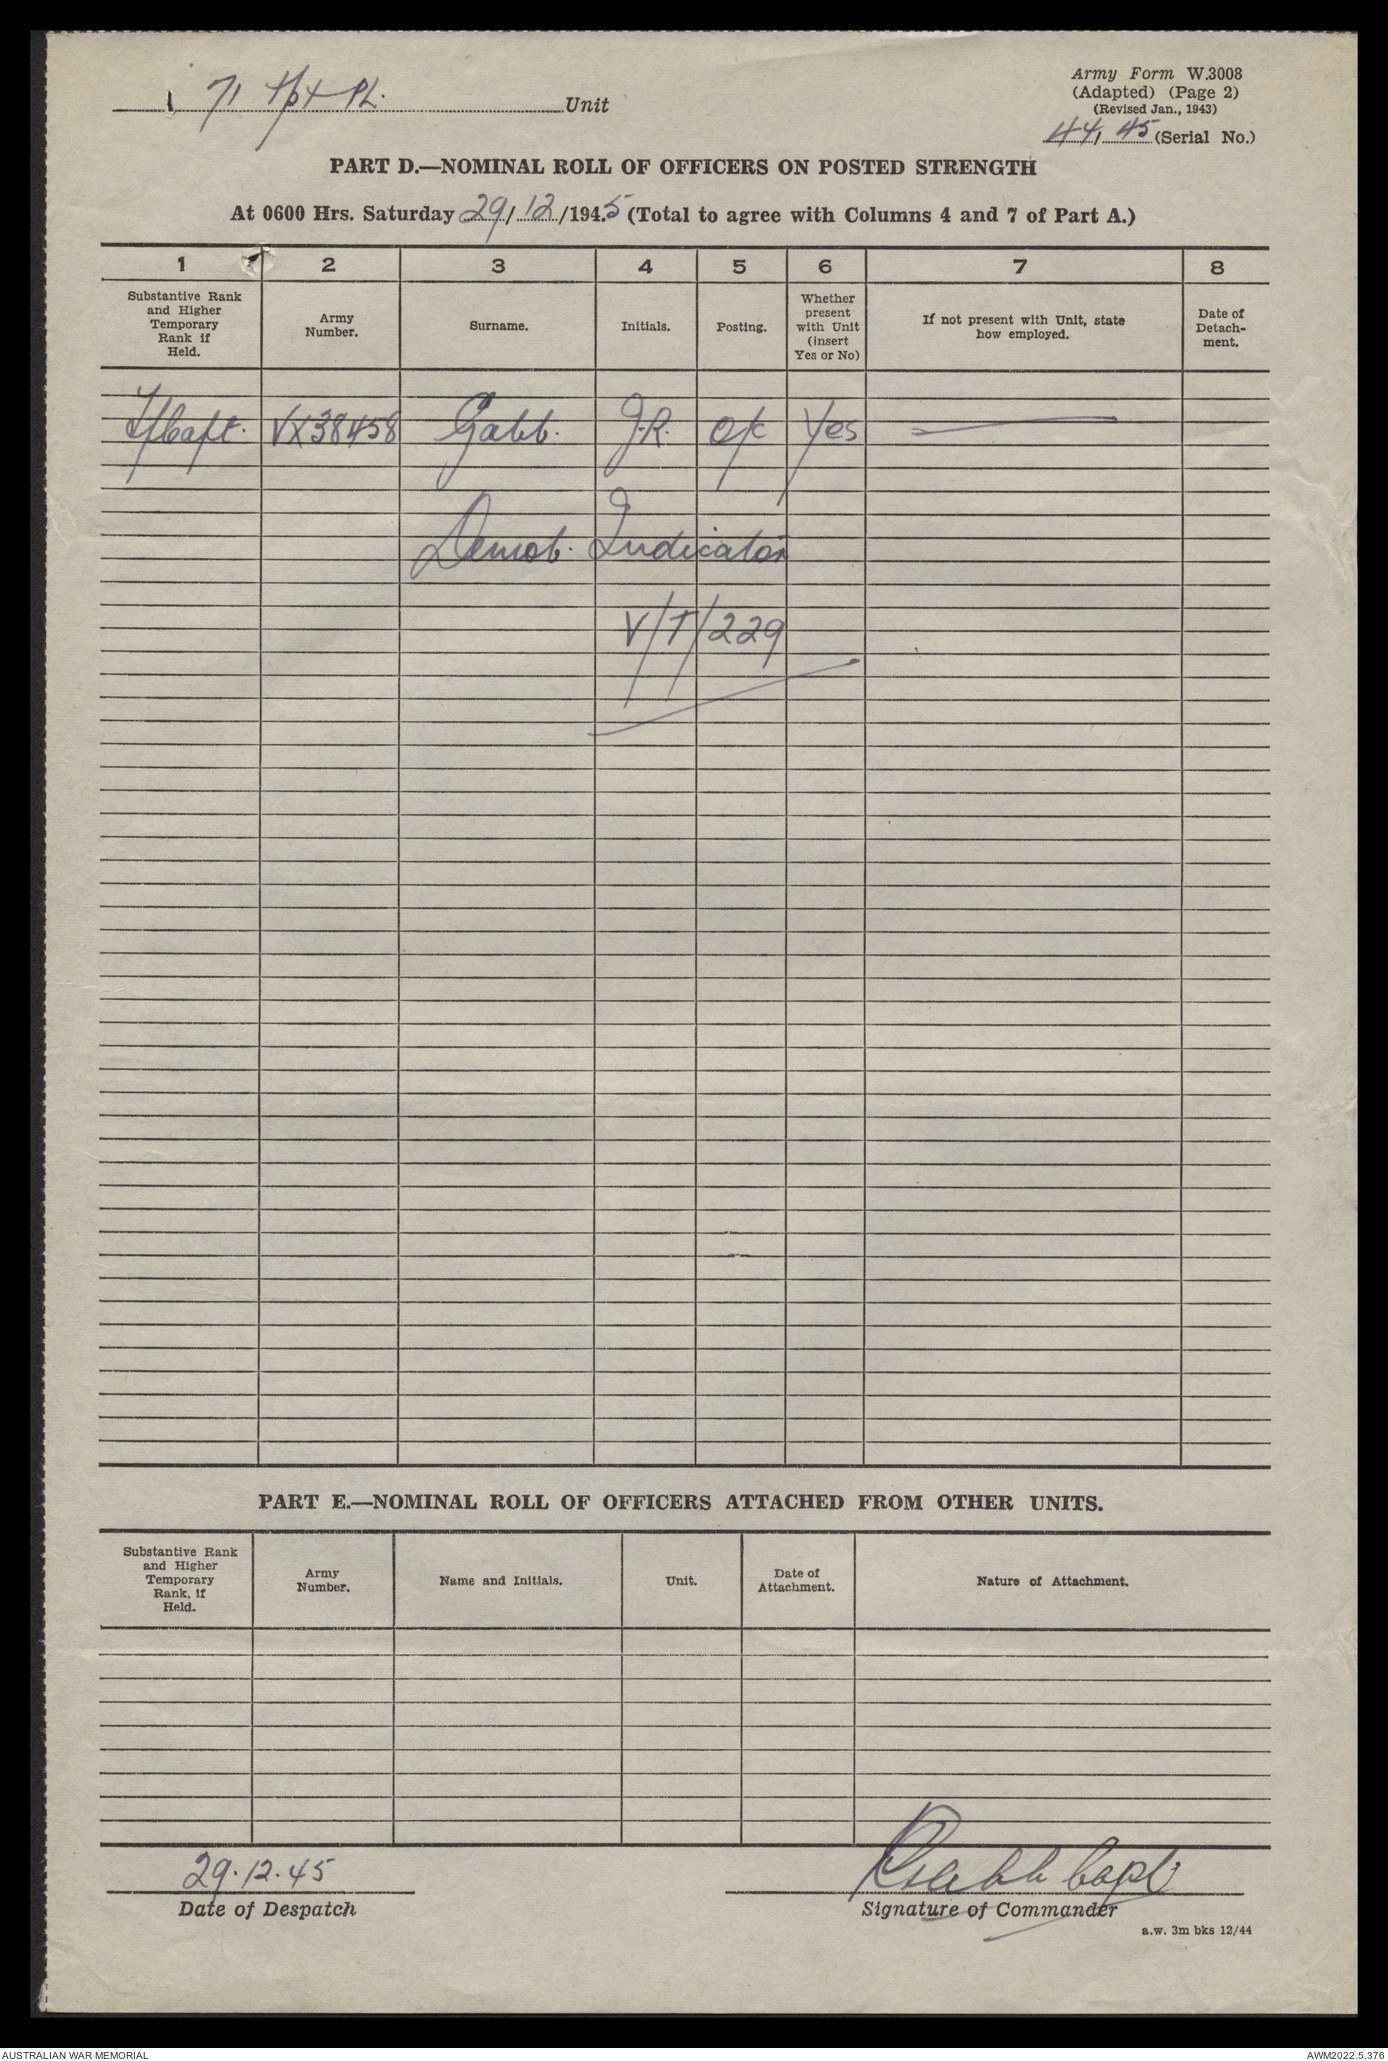 71 Tpt Pl. Unit
Army Form W.3008
(Adapted) (Page 2)
(Revised Jan., 1943)
44, 45 (Serial No.)
PART D.—NOMINAL ROLL OF OFFICERS ON POSTED STRENGTH
At 0600 Hrs. Saturday 29/12/1945 (Total to agree with Columns 4 and 7 of Part A.)
1 2 3 4 5 6 7 8
Substantive Rank and Higher Temporary Rank if Held. Army Number. Surname. Initials. Posting. Whether present with Unit (insert Yes or No) If not present with Unit, state how employed. Date of Detach-ment.
T/Capt. VX38458 Gabb. J.R. O/C Yes
Demob. Indicator
V/T/229
PART E.—NOMINAL ROLL OF OFFICERS ATTACHED FROM OTHER UNITS.
Substantive Rank and Higher Temporary Rank, if Held. Army Number. Name and Initials. Unit. Date of Attachment. Nature of Attachment.
29.12.45 Capt
Date of Despatch Signature of Commander
a.w. 3m bks 12/44
AUSTRALIAN WAR MEMORIAL AWM2022.5.376